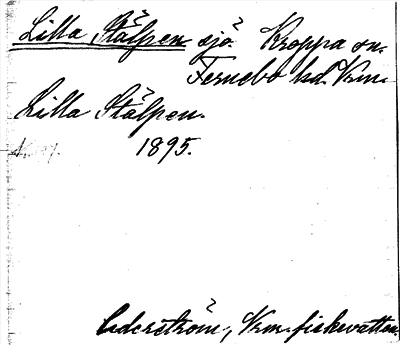 Lilla Stålpen sjö. Kroppa sn.
Fernebo hd. Vrm.
Lilla Stålpen.
1895.
Cederström, Vrm. fiskevatten.